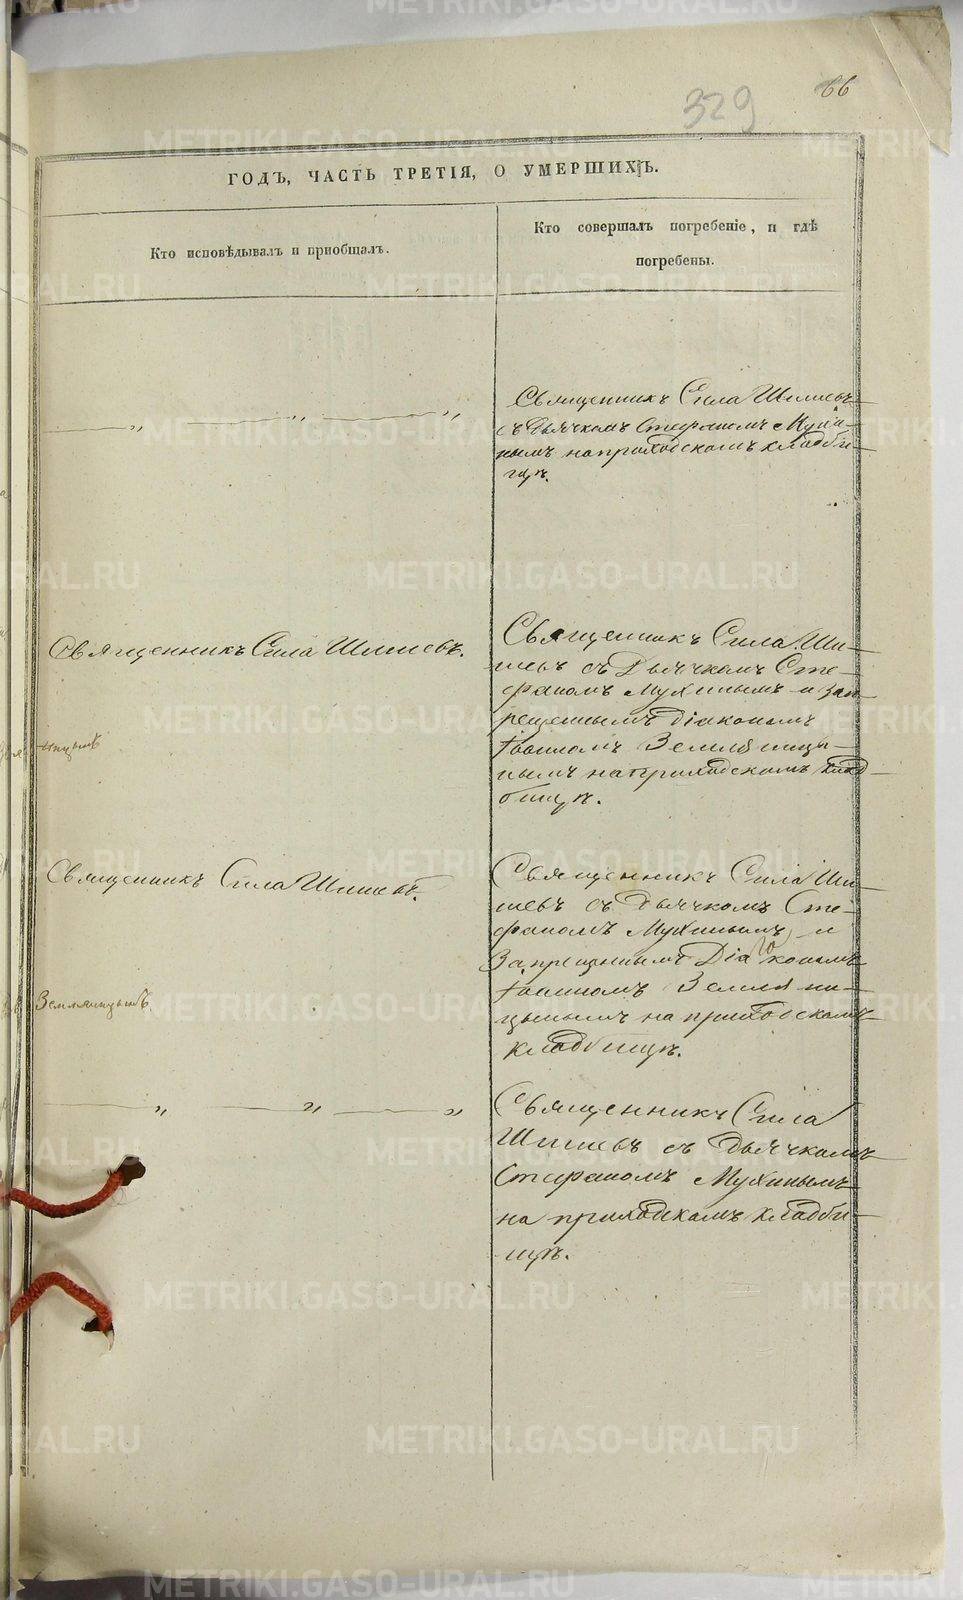 66
329
ГОДЪ, ЧАСТЬ ТРЕТІЯ, О УМЕРШИХЪ.
Кто исповѣдывалъ и пріобщалъ.
Кто совершалъ погребеніе, и гдѣ
погребены.
Священникъ Сила Шишевъ
съ Дьячкомъ Стефаномъ Мухи-
нымъ на приходскомъ кладби-
щѣ.
Священникъ Сила Шишевъ.
Священникъ Сила Ши-
шевъ съ Дьячкомъ Сте-
фаномъ Мухинымъ и зап-
рещеннымъ діакономъ
Іоанномъ Земляницы-
нымъ на приходскомъ клад-
бищѣ.
Священникъ Сила Шишевъ.
Священникъ Сила Ши-
шевъ съ Дьячкомъ Сте-
фаномъ Мухинымъ и
Запрещеннымъ Діакономъ
Іоанномъ Земляни-
цынымъ на приходскомъ
кладбищѣ.
Земляницынъ
Священникъ Сила
Шишевъ съ Дьячкомъ
Стефаномъ Мухинымъ
на приходскамъ кладби-
щѣ.
METRIKI.GASO-URAL.RU